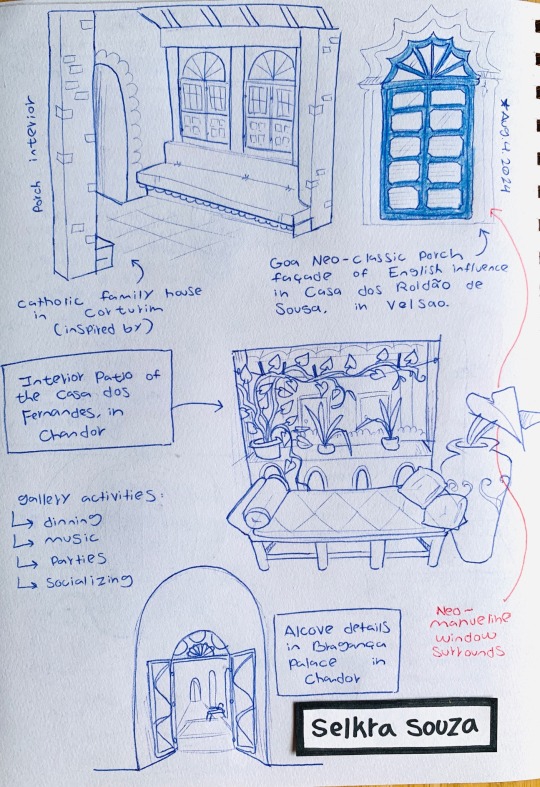 Porch interior
★ Aug 14 2024
Goa Neo-classic porch
façade of English influence
in Casa dos Roldão de
Sousa, in Velsao.
Catholic family house
in Curturim
(inspired by)
Interior Patio of
the Casa dos
Fernandes, in
Chandor
gallery activities:
↳ dinning
↳ music
↳ Parties
↳ Socializing
Neo-
manueline
window
surrounds
Alcove details
in Bragança
Palace in
Chandor
Selkra Souza